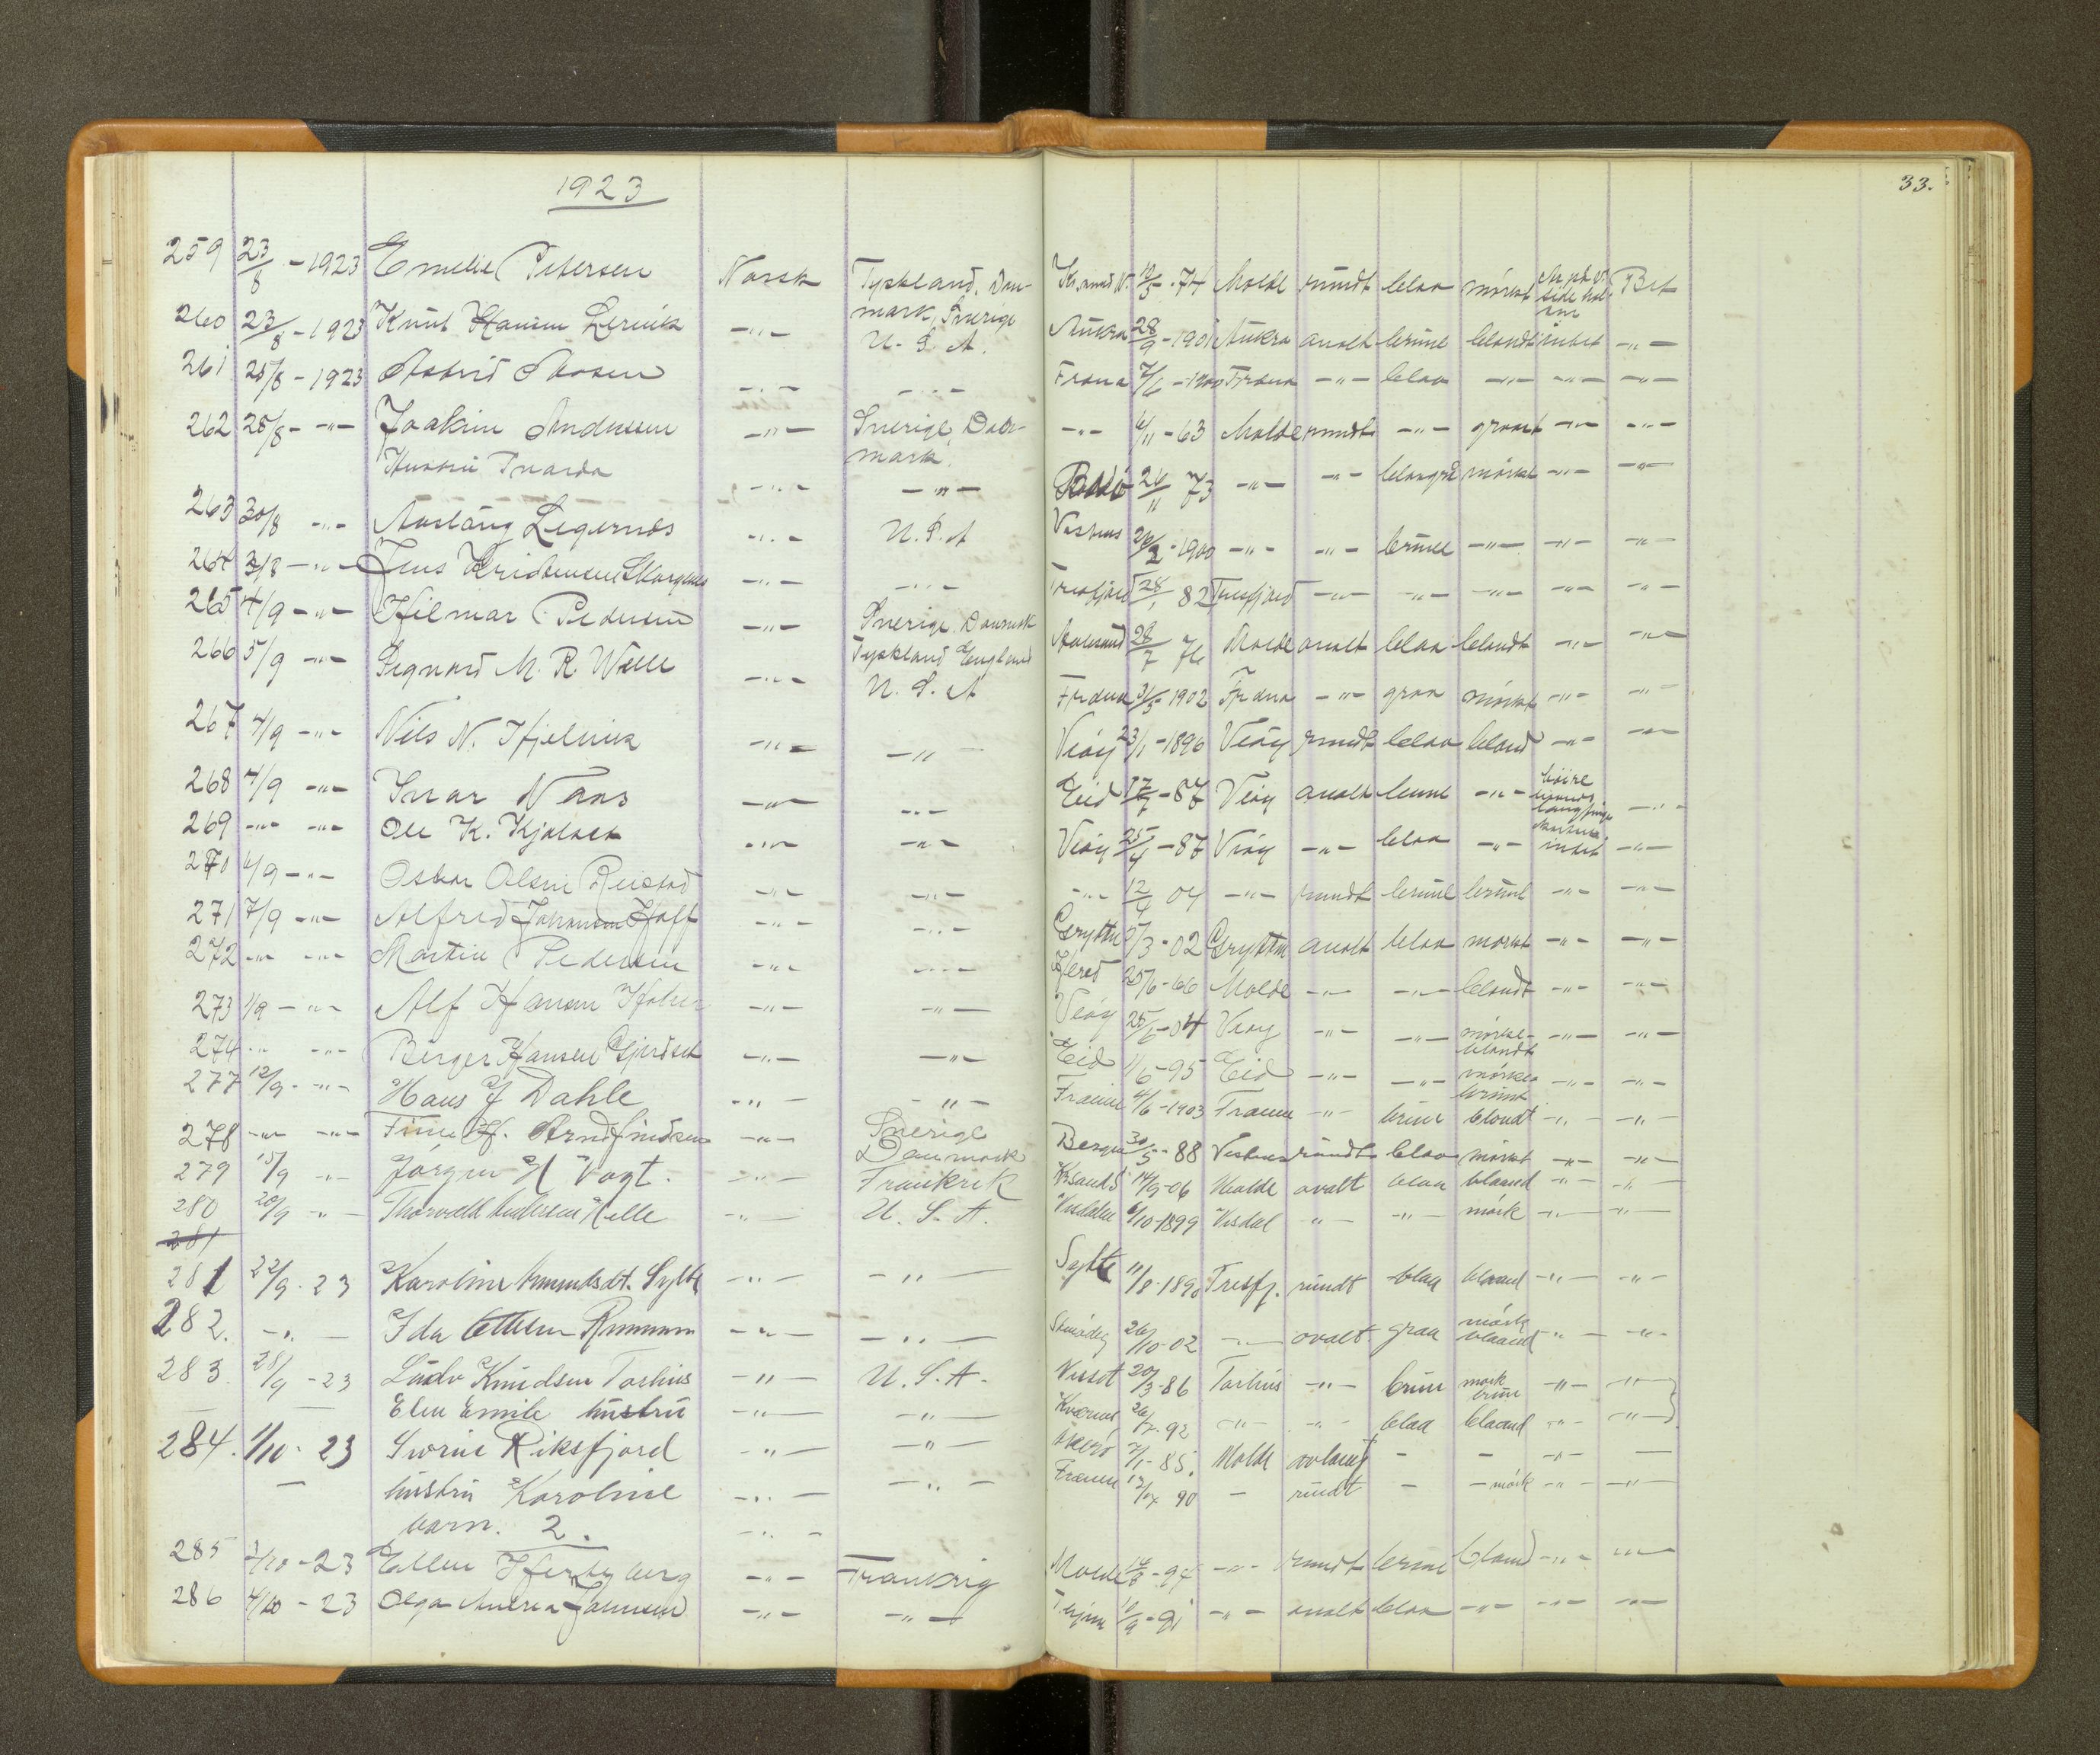 1923
33.
259 23/8 - 1923 Emelie Petersen Norsk Tyskland, Dan- Kr.sund N. 12/5 - 74 Molde rundt blaa mørkt side Bet
mark, Sverige
260 23/8 - 1923 Knut Hansen Lervik -"- U. S. A. Aukra 28/9 - 1901 Aukra ovalt brune blondt intet -"-
261 25/8 - 1923 Astrid Mosen -"- -"- Fræna 7/6 - 1900 Fræna -"- blaa -"- -"- -"-
262 25/8 - -"- Joakim Andersen -"- Sverige, Dan- -"- 6/11 - 63 Molde rundt -"- graat -"- -"-
mark.
Hustru Tvarda -"- -"- Bodø 26/11 73 -"- -"- blaagrå mørkt -"- -"-
263 30/8 -"- Aslaug Legernes -"- U. S. A Vestnes 26/2 - 1900 -"- -"- brune -"- -"- -"-
264 3/8 - -"- Jens Kristensen -"- -"- Tresfjord 28/1 82 Tresfjord -"- -"- -"- -"- -"-
265 4/9 - -"- Hilmar Pedersen -"- Sverige, Danmark Aalesund 28/7 76 Molde ovalt blaa blondt -"- -"-
Tyskland England
266 5/9 -"- Sigvard M. R. Walle -"- U. S. A Fræna 31/5 1902 Fræna -"- graa mørkt -"- -"-
267 4/9 -"- Nils N. Hjelvik -"- -"- Veøy 23/1 - 1896 Veøy rundt blaa blond -"- -"-
268 4/9 -"- Ivar Naas -"- -"- Eid 17/7 - 87 Veøy ovalt brune -"- høire haands langfinger -"-
269 -"- -"- Ole K. Kjølset -"- -"- Veøy 25/4 - 87 Veøy -"- blaa -"- intet -"-
270 6/9 - -"- Oskar Olsen Reistad -"- -"- -"- 12/4 04 -"- rundt brune brune -"- -"-
271 7/9 -"- Alfred Johansen Hoff -"- -"- Grytten 5/3 - 02 Grytten ovalt blaa mørkt -"- -"-
272 -"- -"- Martin Pedersen -"- -"- Herød 25/6 - 66 Molde -"- -"- blondt -"- -"-
273 1/9 - -"- Alf Hansen -"- -"- Veøy 25/6 - 04 Veøy -"- -"- mørke- -"- -"-
blondt
274 -"- -"- Birger Hansen Gjerdset -"- -"- Eid 1/6 - 95 Eid -"- -"- mørke -"- -"-
brune
277 12/9 - -"- Hans J Dahle -"- -"- Fræna 4/6 - 1903 Fræna -"- brune blondt -"- -"-
278 -"- -"- Finn H. Arndfindsen -"- Sverige Bergen 30/5 - 88 Vestnes rundt blaa mørkt -"- -"-
Danmark
279 15/9 -"- Jørgen H Vogt. -"- Frankrik Krsands 14/9 - 06 Molde ovalt blaa blaand -"- -"-
280 20/9 -"- Thorvald Andersen Helle -"- U. S. A. Visdalen 6/10 - 1899 Visdal -"- -"- mørk -"- -"-
281
281 22/9 - 23 Karoline Amundsdt. Sylte -"- -"- Sylte 11/8 - 1890 Tresfj. rundt blaa blaand -"- -"-
282. -"- Ida -"- -"- 26/10 - 02 -"- ovalt graa mørk -"- -"-
blaand
283. 28/9 - 23 Ludv Knudsen Torhus -"- U. S. A. 20/3 - 86 Torhus -"- brun mørk -"- -"-
brun
Elen Emile hustru -"- -"- 26/7 - 92 -"- -"- blaa blaand -"- -"-
284. 1/10 - 23 Sverre Riksfjord -"- -"- Akerø 7/1 - 85. Molde avlang - - -"- -
hustru Karoline -"- -"- Fræna 12/4 90 - rundt - - mørk -"- -"-
barn. 2. -"-
285 1/10 - 23 Ellen Hertzberg -"- Frankrig Molde 16/8 - 94 -"- rundt brune blond -"- -"-
286 4/10 - 23 Olga Andrea Johnsen -"- -"- 10/9 - 91 -"- ovalt blaa -"- -"- -"-